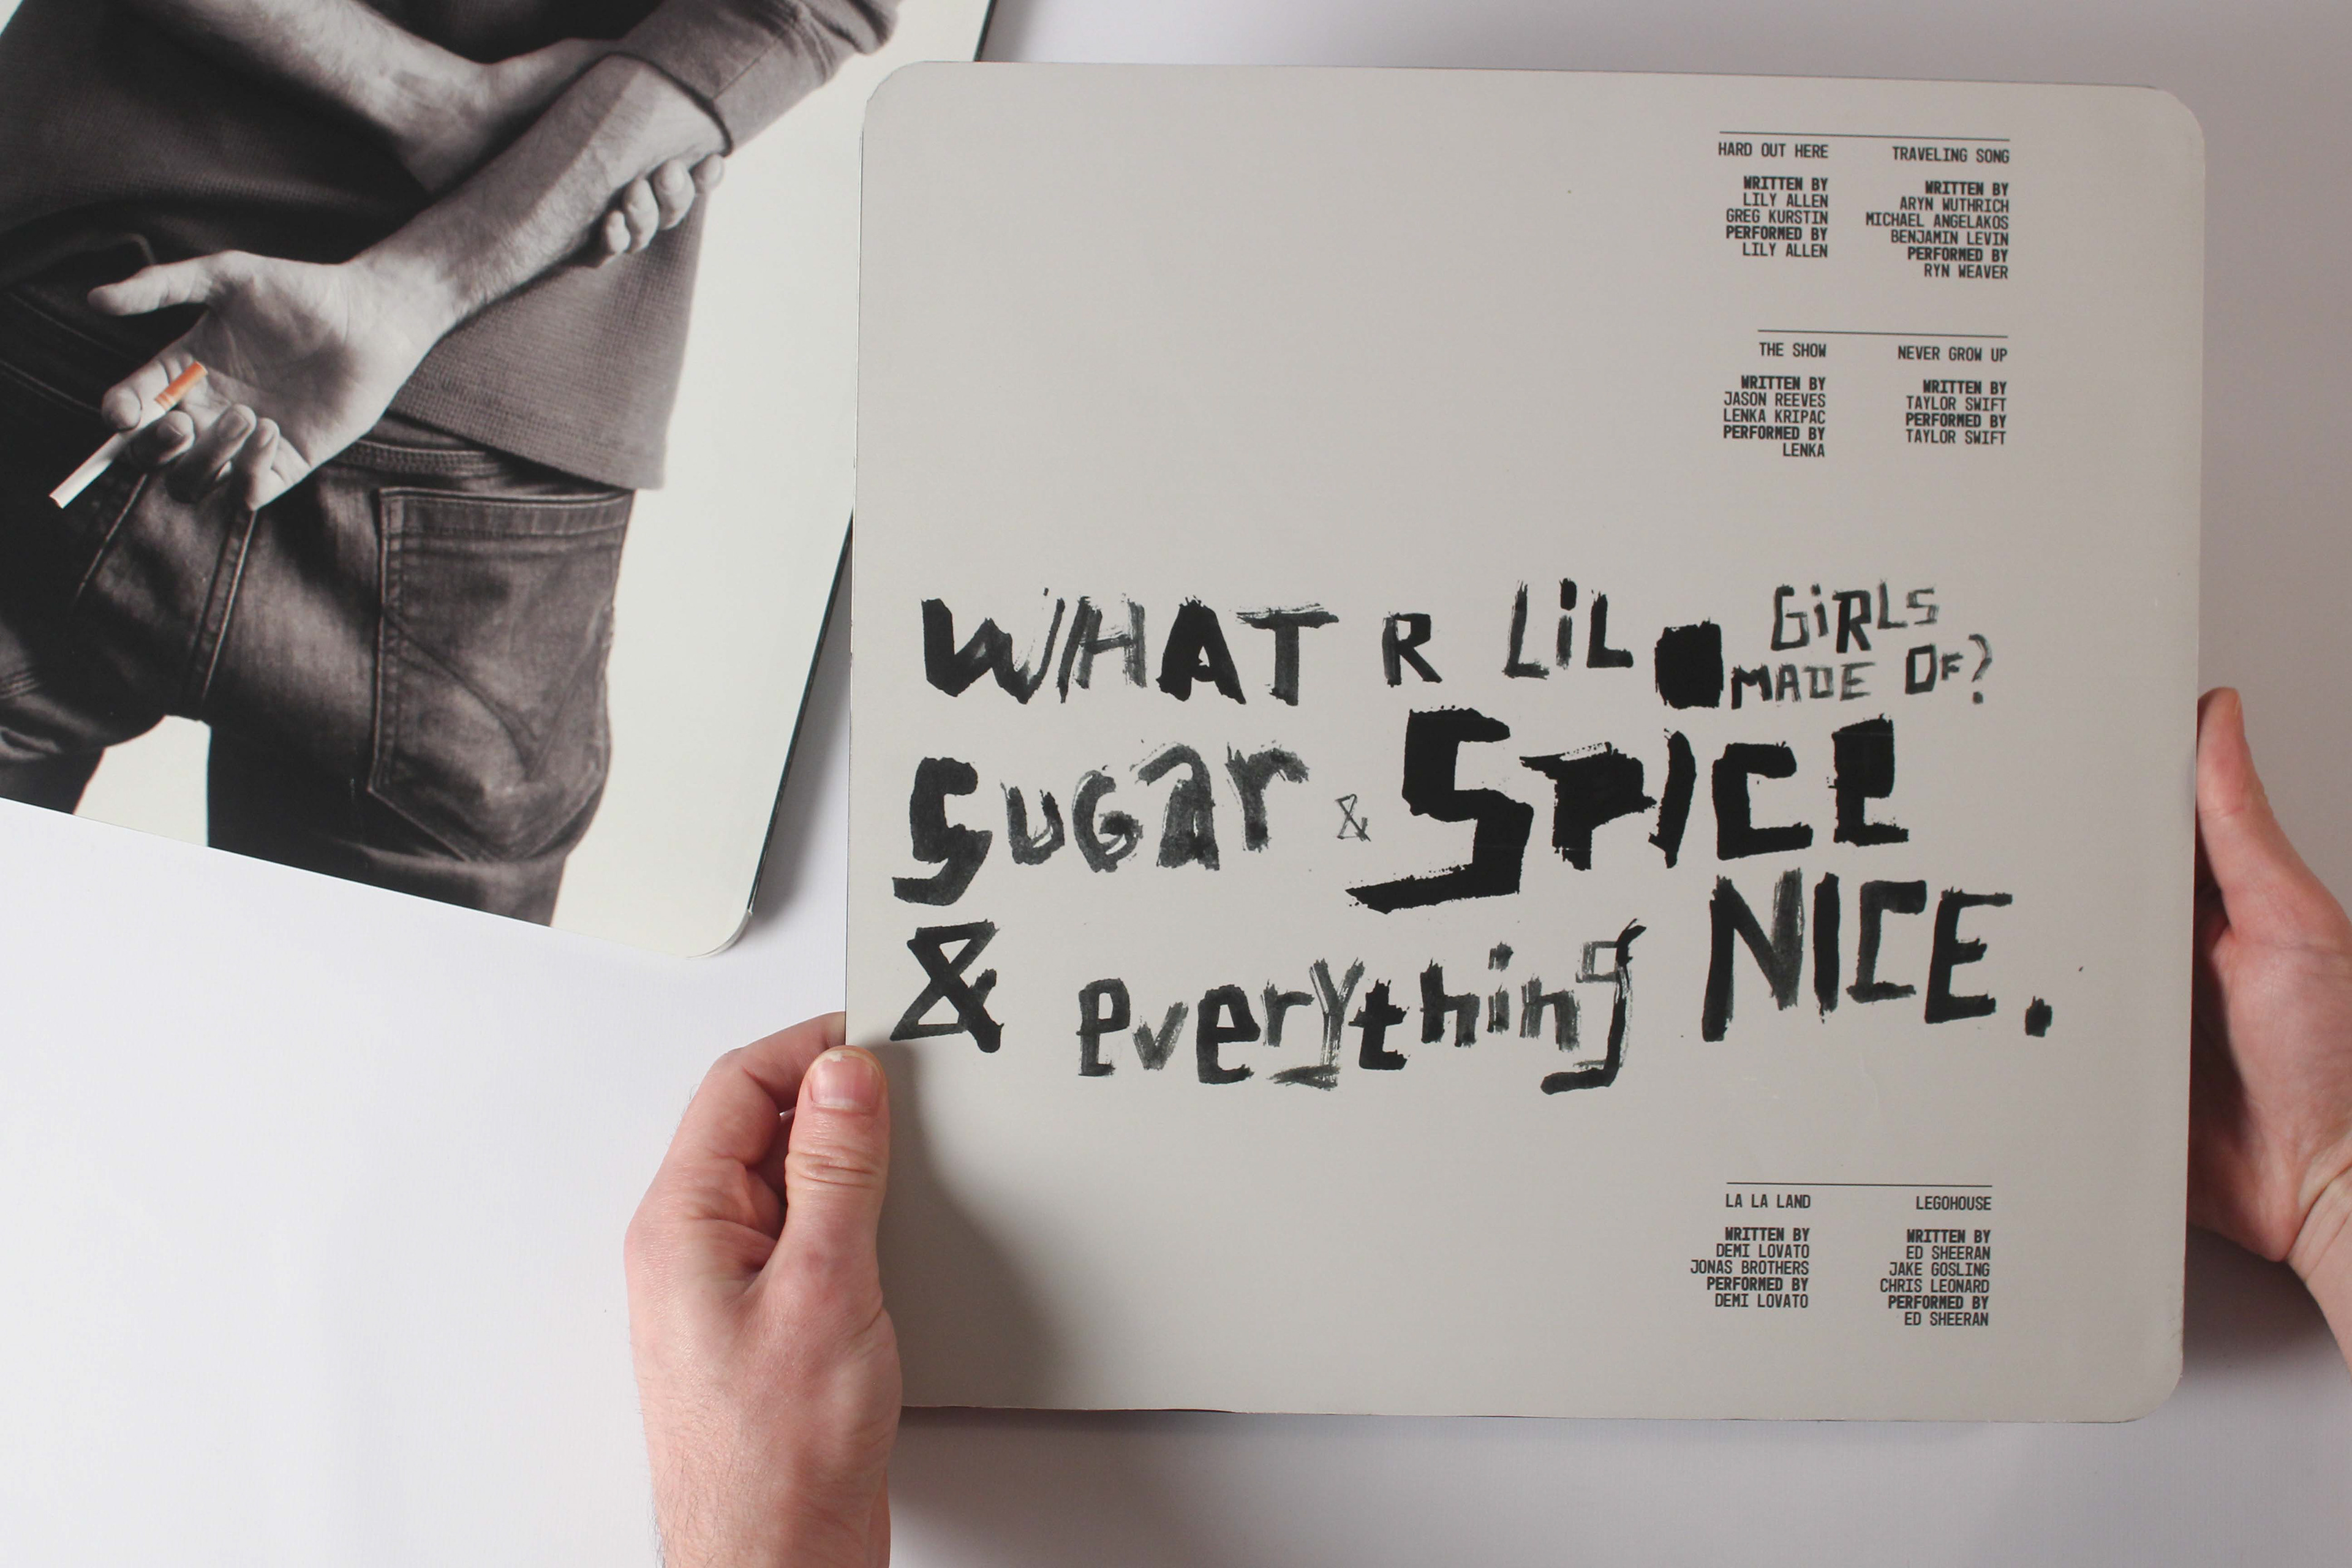 HARD OUT HERE
WRITTEN BY
LILY ALLEN
GREG KURSTIN
PERFORMED BY
LILY ALLEN
TRAVELING SONG
WRITTEN BY
ARYN WUTHRICH
MICHAEL ANGELAKOS
BENJAMIN LEVIN
PERFORMED BY
RYN WEAVER
THE SHOW
WRITTEN BY
JASON REEVES
LENKA KRIPAC
PERFORMED BY
LENKA
NEVER GROW UP
WRITTEN BY
TAYLOR SWIFT
PERFORMED BY
TAYLOR SWIFT
WHAT R LiL GiRLS
MADE OF?
SUGar & SPICE
& everything NICE.
LA LA LAND
WRITTEN BY
DEMI LOVATO
JONAS BROTHERS
PERFORMED BY
DEMI LOVATO
LEGOHOUSE
WRITTEN BY
ED SHEERAN
JAKE GOSLING
CHRIS LEONARD
PERFORMED BY
ED SHEERAN